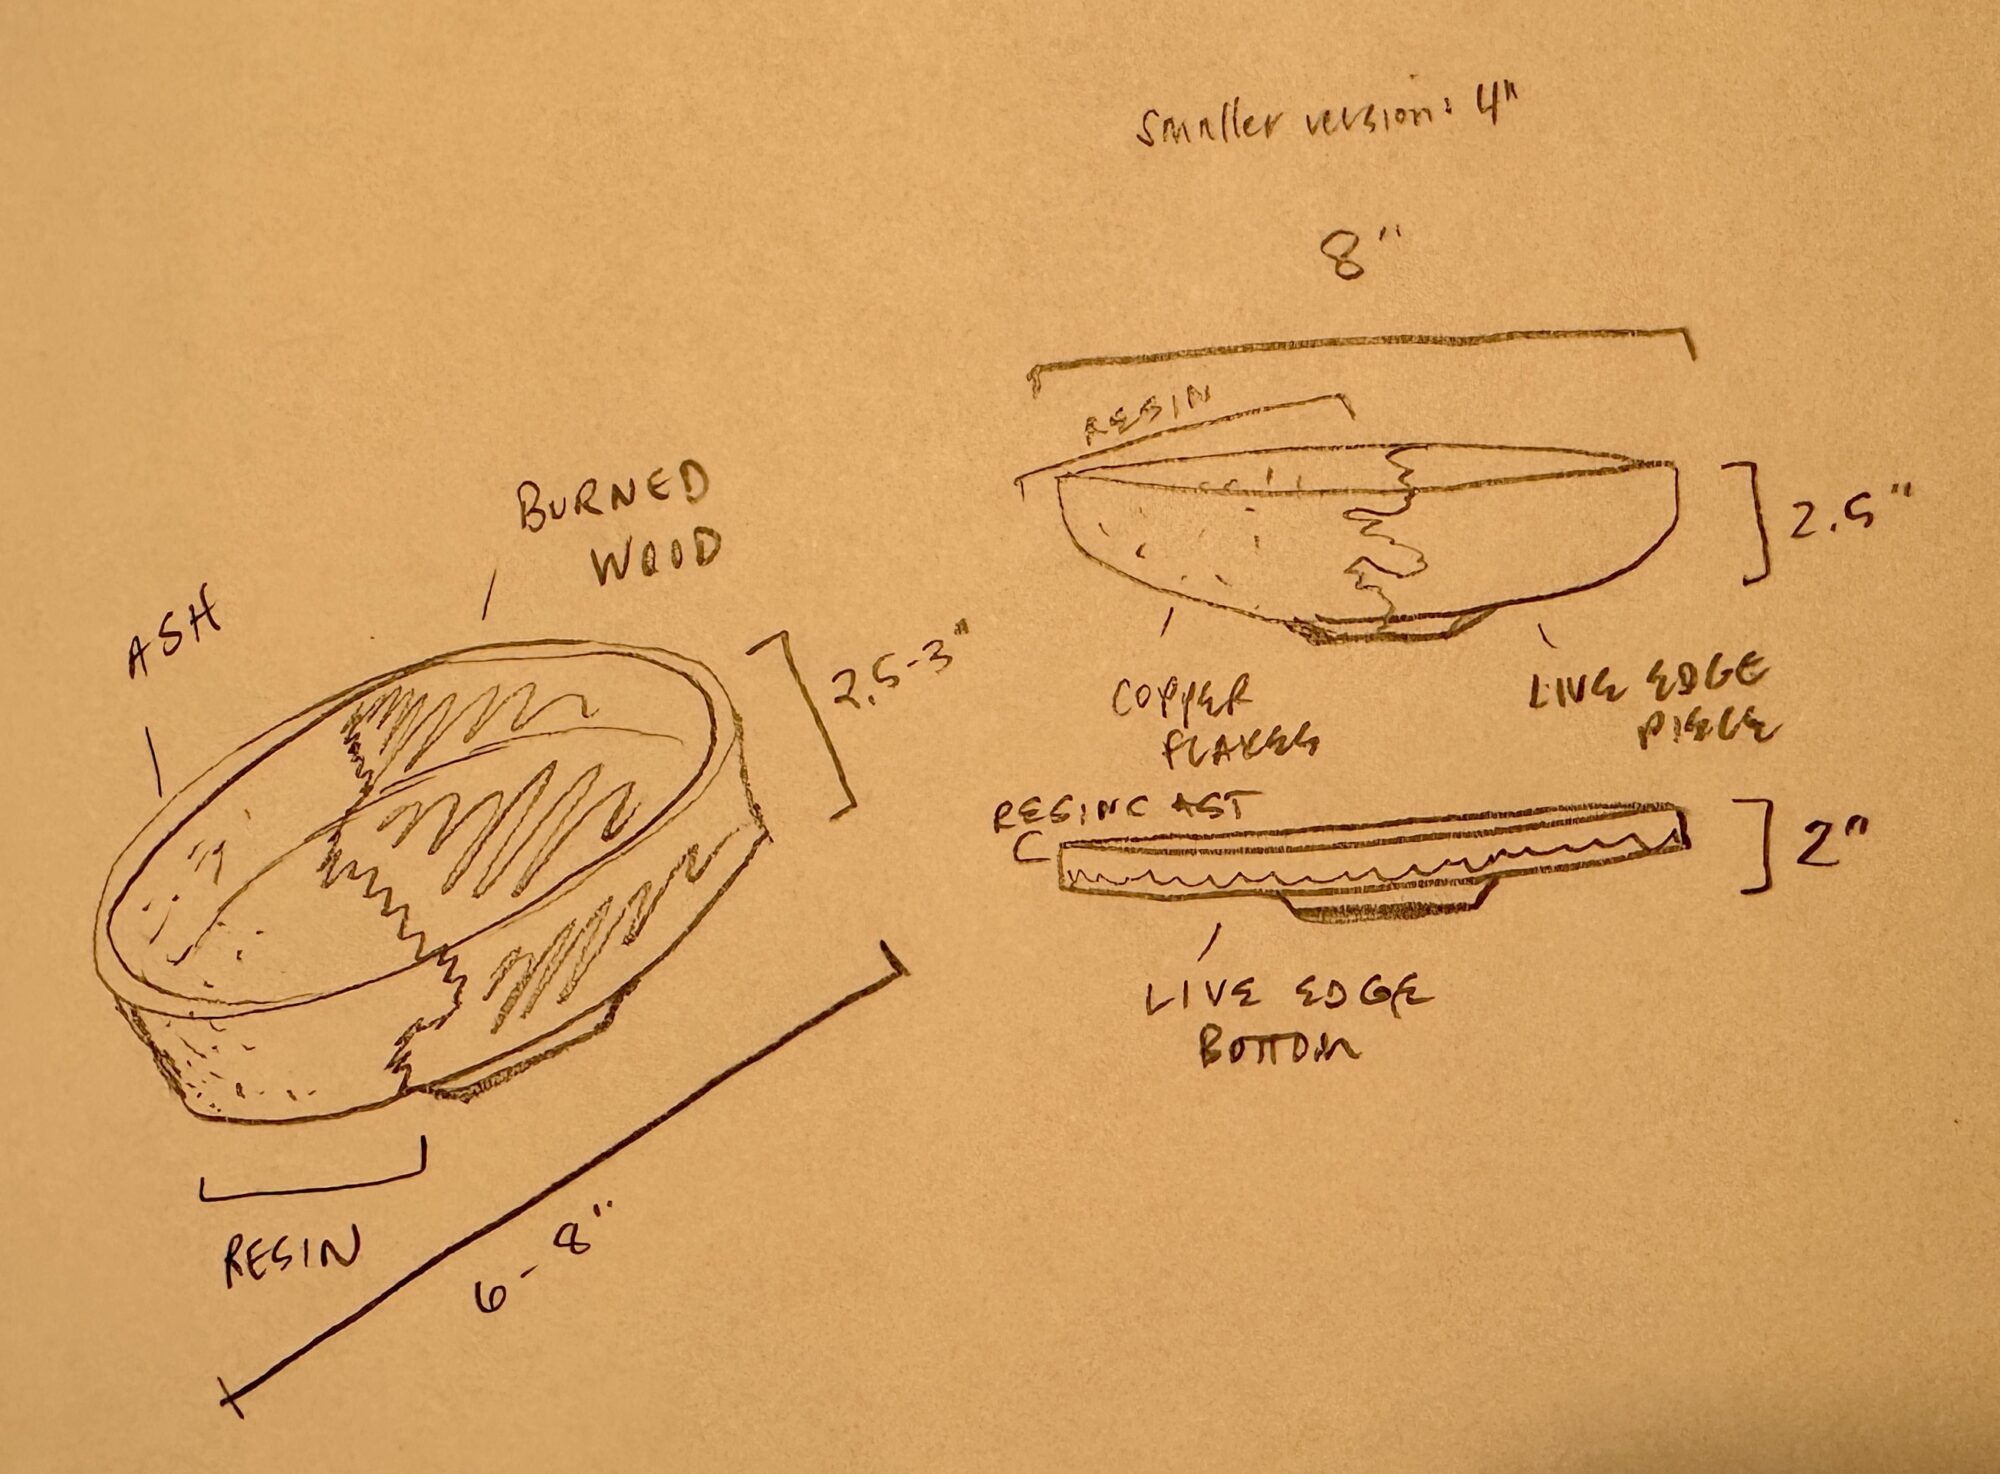 Smaller version: 4"
8"
RESIN
2.5"
COPPER
FLAKES
LIVE EDGE
PIECE
BURNED
WOOD
ASH
2.5-3"
RESIN
6-8"
RESIN CAST
2"
LIVE EDGE
BOTTOM